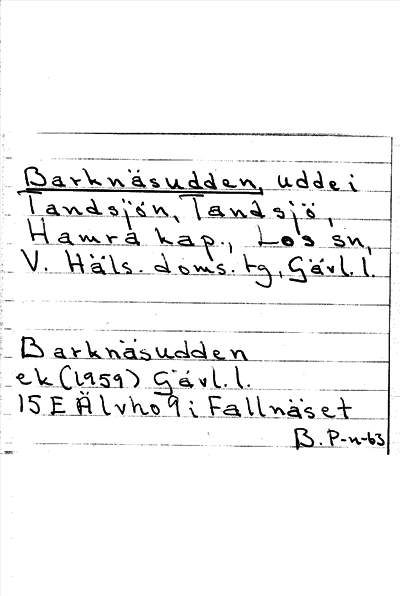 Barknäsudden, udde i
Tandsjön, Tandsjö,
Hamra kap., Los sn,
V. Häls. doms. tg, Gävl. l.
Barknäsudden
ek (1959) Gävl. l.
15 E Älvho 9 i Fallnäset
B. P-n-63